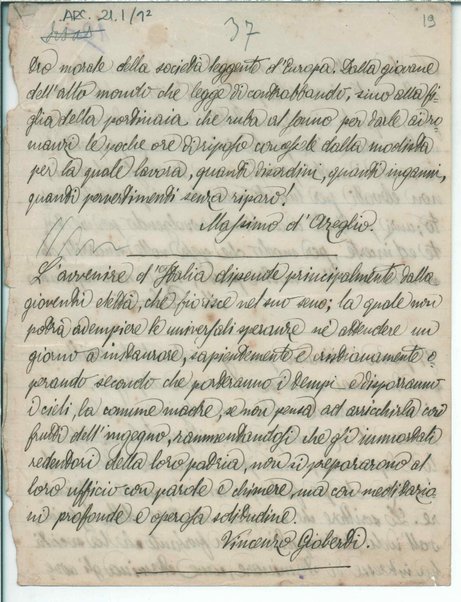 ARC. 21.1/1²
37
19
tro morale della società leggente d'Europa. Dalla giovane
dell'alto mondo che legge di contrabbando, sino alla fi-
glia della portinaia che ruba al sonno per darle ai ro-
manzi le poche ore di riposo concessole dalla modista
per la quale lavora, quanti disordini, quanti inganni,
quanti pervertimenti senza riparo!
Massimo d'Azeglio.
L'avvenire d'Italia dipende principalmente dalla
gioventù eletta, che fiorisce nel suo seno; la quale non
potrà adempiere le universali speranze nè attendere un
giorno a instaurare, sapientemente e cristianamente o-
perando secondo che porteranno i tempi e disporranno
i cieli, la comune madre, se non pensa ad arricchirla coi
frutti dell'ingegno, rammentandosi che gli immortali
redentori della loro patria, non si prepararono al
loro ufficio con parole e chimere, ma con meditazio-
ni profonde e operosa solitudine.
Vincenzo Gioberti.